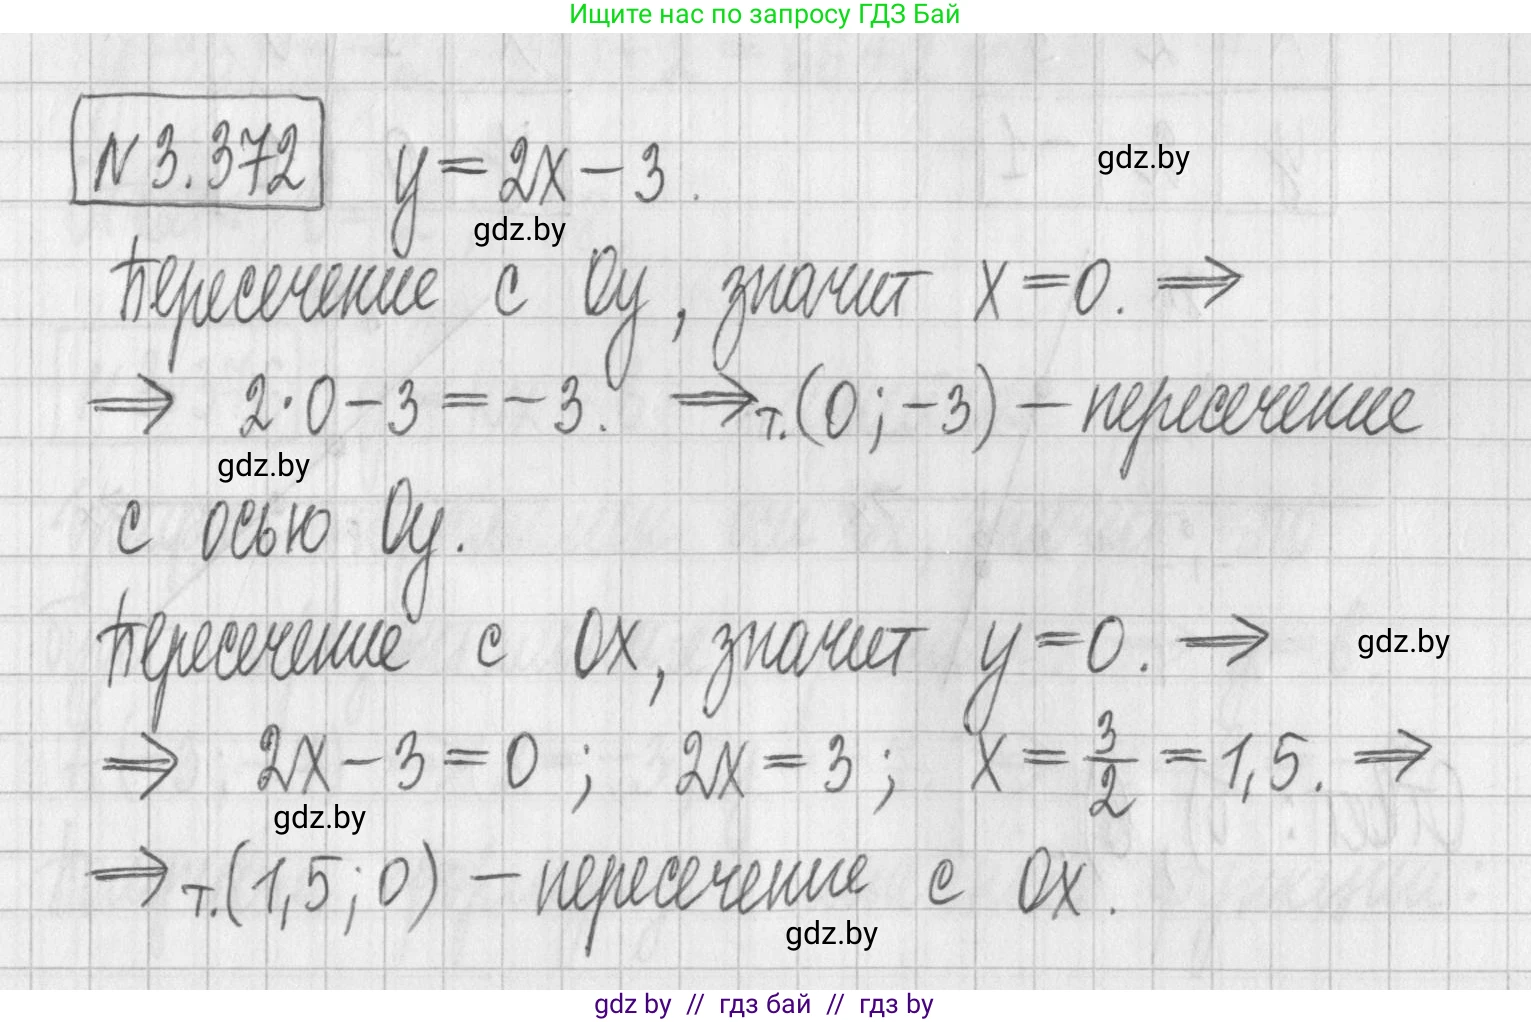 Ищите нас по запросу ГДЗ Бай
N 3.372 y = 2x - 3.
gdz.by
gdz.by
Пересечение с Oy, значит x = 0. ⇒
⇒ 2·0 - 3 = -3. ⇒ т.(0; -3) - пересечение
gdz.by
с осью Oy.
Пересечение с Ox, значит y = 0. ⇒
gdz.by
⇒ 2x - 3 = 0; 2x = 3; x = 3/2 = 1,5. ⇒
gdz.by
⇒ т.(1,5; 0) - пересечение с Ox.
gdz.by
gdz by // гдз бай // гдз by